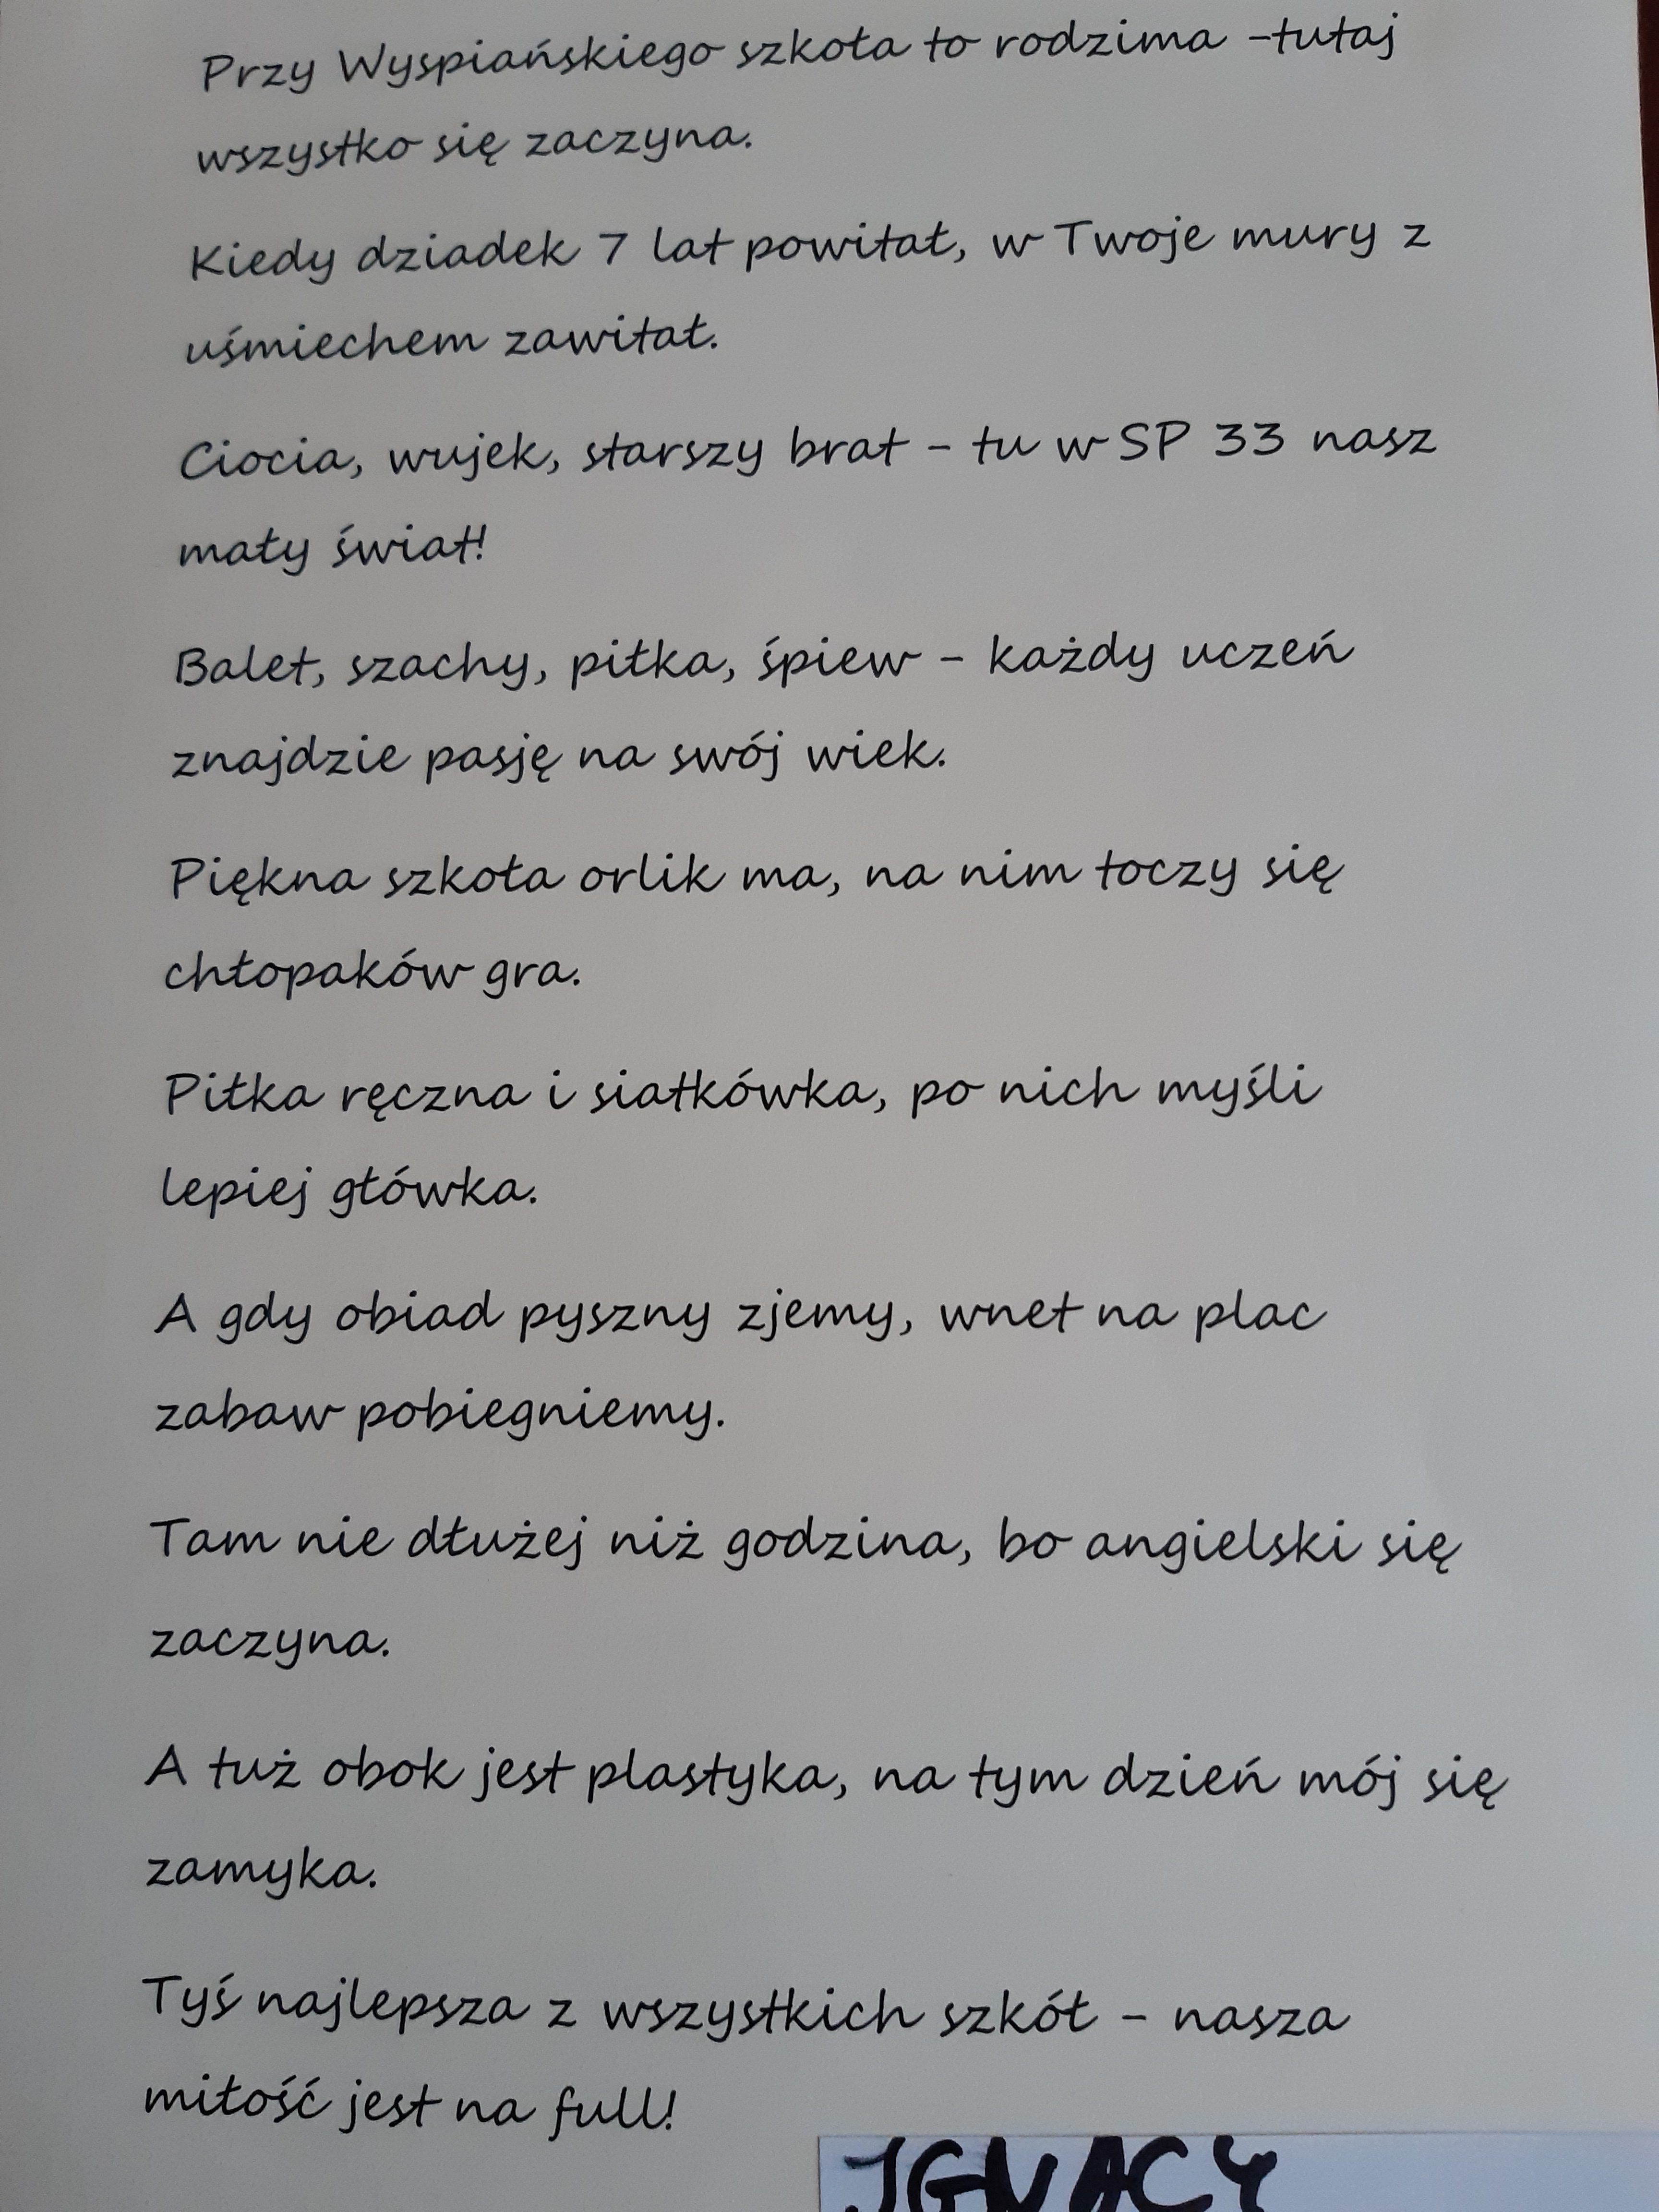 Przy Wyspiańskiego szkoła to rodzima -tutaj
wszystko się zaczyna.
Kiedy dziadek 7 lat powitał, w Twoje mury z
uśmiechem zawitał.
Ciocia, wujek, starszy brat - tu w SP 33 nasz
mały świat!
Balet, szachy, piłka, śpiew - każdy uczeń
znajdzie pasję na swój wiek.
Piękna szkoła orlik ma, na nim toczy się
chłopaków gra.
Piłka ręczna i siatkówka, po nich myśli
lepiej główka.
A gdy obiad pyszny zjemy, wnet na plac
zabaw pobiegniemy.
Tam nie dłużej niż godzina, bo angielski się
zaczyna.
A tuż obok jest plastyka, na tym dzień mój się
zamyka.
Tyś najlepsza z wszystkich szkół - nasza
miłość jest na full!
IGNACY